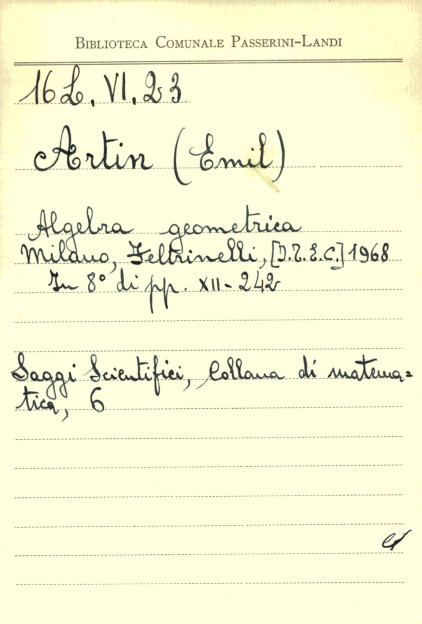 BIBLIOTECA COMUNALE PASSERINI-LANDI
16L.VI.23
Artin (Emil)
Algebra geometrica
Milano, Feltrinelli, [I.T.E.C.] 1968
In 8° di pp. XII-242
Saggi Scientifici, Collana di matema=
tica, 6